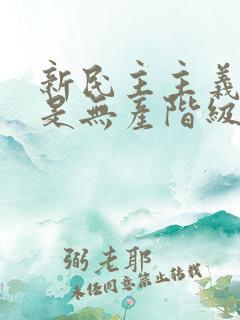 新民主主義
是無產階級
弼老耶
未經同意禁止轉載